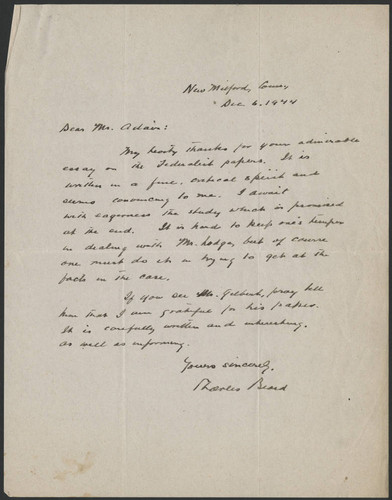 New Milford, Conn,
Dec 6, 1944
Dear Mr. Adair:
My hearty thanks for your admirable
essay on the Federalist papers. It is
written in a fine, critical spirit and
seems convincing to me. I await
with eagerness the study which is promised
at the end. It is hard to keep one's temper
in dealing with Mr. Lodge, but of course
one must do it in trying to get at the
facts in the case.
If you see Mr. Gilbert, pray tell
him that I am grateful for his
It is carefully written and interesting,
as well as informing.
Yours sincerely,
Charles Beard